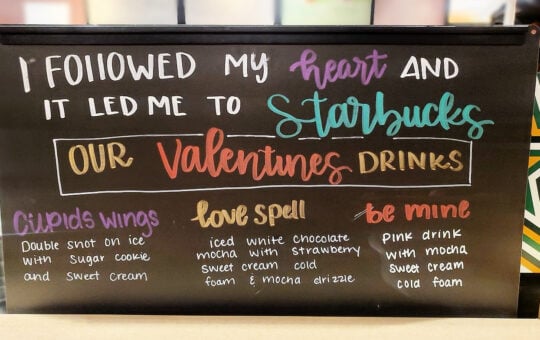 I FOllOWED MY heart AND
IT LED ME TO Starbucks
OUR Valentines DRINKS
Cupids wings
Double shot on ice
with sugar cookie
and sweet cream
love spell
iced white chocolate
mocha with strawberry
sweet cream cold
foam & mocha drizzle
be mine
Pink drink
with mocha
sweet cream
cold foam